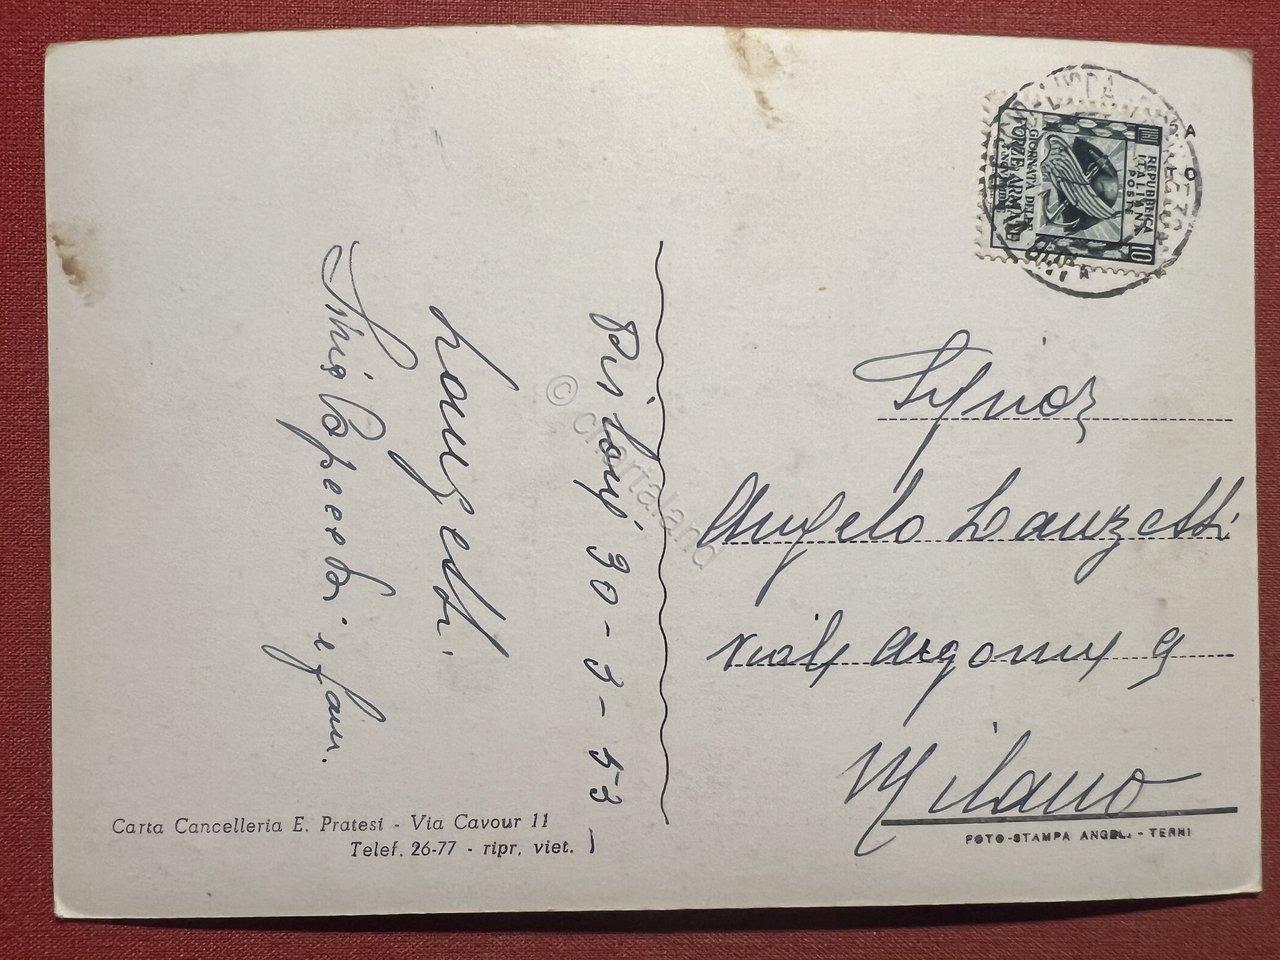 REPUBBLICA
ITALIANA
POSTE
10
GIORNATA DELLE
FORZE ARMATE
Signor
Angelo Lanzetti
viale Argonne 9
Milano
30-3-53
Lanzetti
e fam.
© chartaland
Carta Cancelleria E. Pratesi - Via Cavour 11
Telef. 26-77 - ripr. viet.
FOTO-STAMPA ANGELI - TERNI